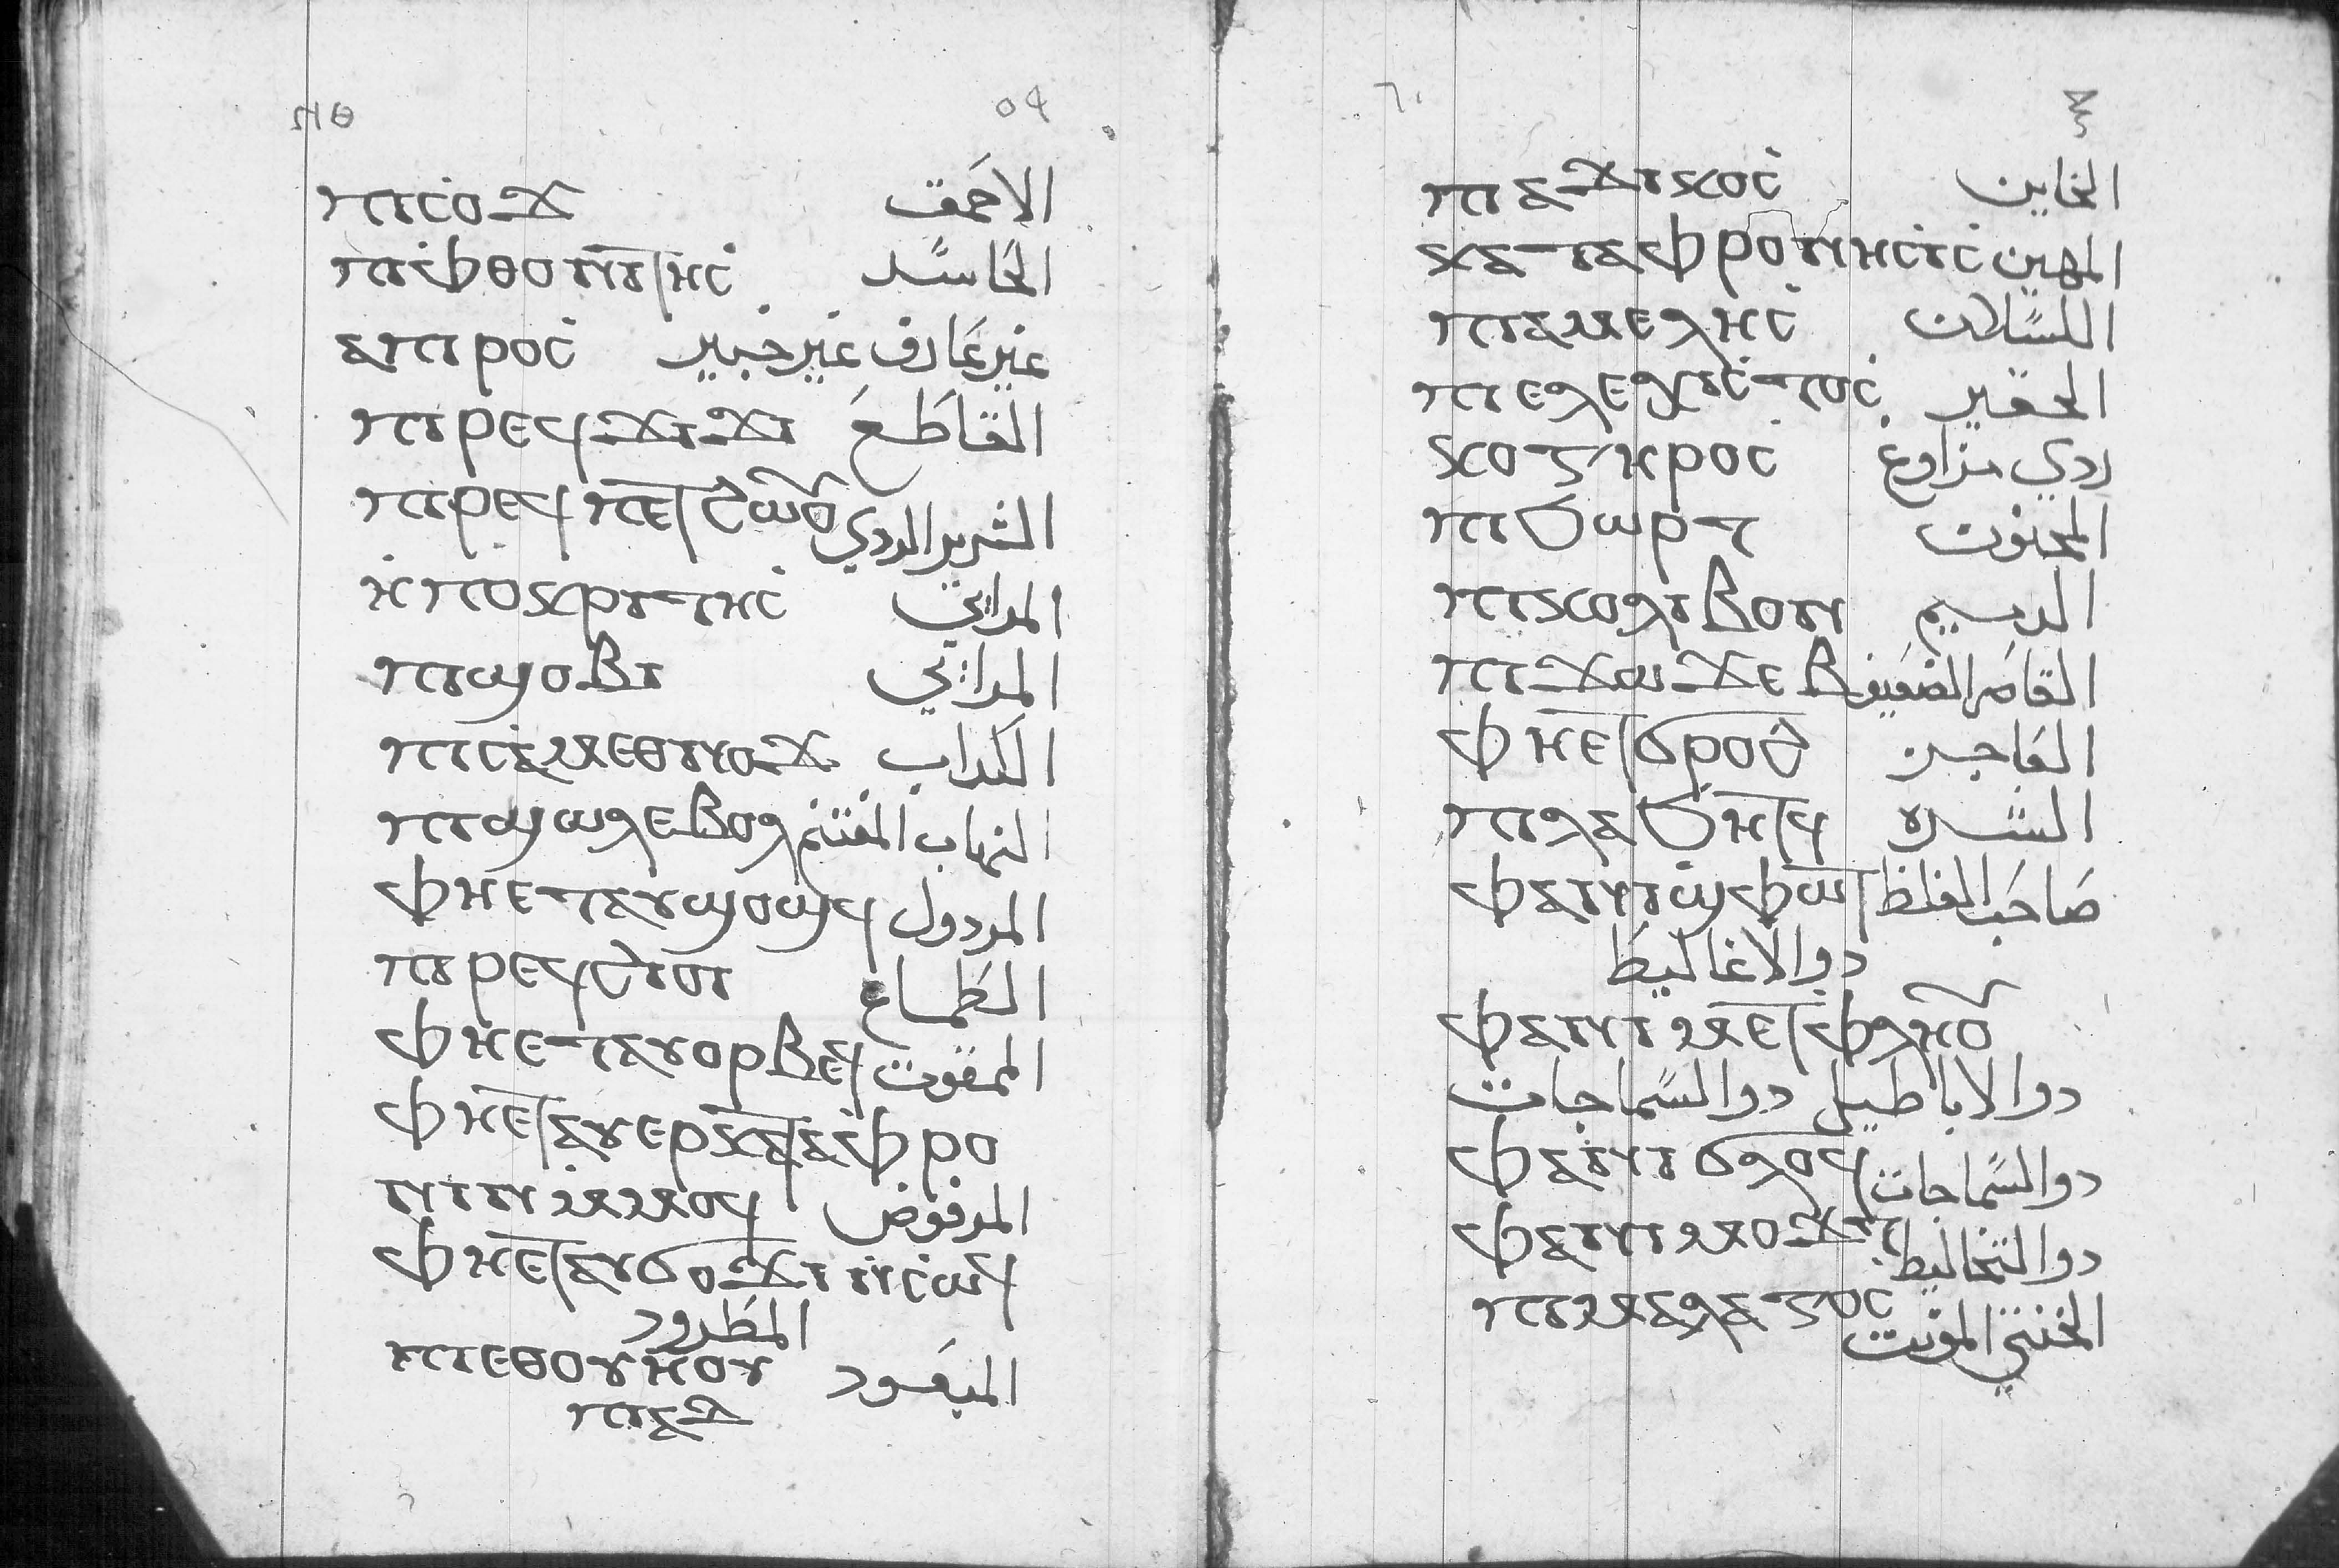 ⲛⲑ ٥٩
ⲡⲓⲥⲟϫ الاحمق
ⲡⲓⲫⲑⲟⲛⲓⲧⲏⲥ الحاسد
ⲁⲡⲓⲣⲟⲥ غير عارف غير خبير
ⲡⲓⲣⲉϥϫⲓϫⲓ القاطع
ⲡⲓⲣⲉϥⲡⲉⲧϩⲱⲟⲩ الشرير الردي
ⲏⲡⲟⲕⲣⲓⲧⲏⲥ المرايي
ⲡⲓϣⲟⲃⲓ المرايي
ⲡⲓⲥⲁⲙⲉⲑⲛⲟϫ الكداب
ⲡⲓϣⲱⲗⲉⲃⲟⲗ النهاب المغتنم
ⲫⲏⲉⲧⲁⲩϣⲟϣϥ المردول
ⲡⲓⲣⲉϥϩⲓⲟⲓ الطماع
ⲫⲏⲉⲧⲁⲩⲟⲣⲃⲉϥ الممقوت
ⲫⲏⲉⲧⲁⲩⲉⲣⲕⲁⲧⲁⲫⲣⲟ
ⲛⲓⲛⲙⲙⲟϥ المرفوض
ⲫⲏⲉⲧⲁⲩϭⲟϫⲓⲛⲥⲱϥ
المطرود
ⲡⲓⲉⲑⲟⲩⲏⲟⲩ المبعود
ⲡⲓⲁϫ
٦٠ ⲝ
ⲡⲓⲁϫⲓⲕⲟⲥ الخاين
ⲕⲁⲧⲁⲫⲣⲟⲛⲏⲥⲓⲥ المهين
ⲡⲓⲁⲙⲉⲗⲏⲥ الكسلان
ⲡⲓⲉⲗⲉⲭⲓⲥⲧⲟⲥ الحقير
ⲕⲟⲍⲏⲣⲟⲥ ردي مزاوغ
ⲡⲓϭⲱⲣⲧ المجنون
ⲡⲓⲕⲟⲗⲓⲃⲟⲛ الرسيم
ⲡⲓϫⲱϫⲉⲃ القاصر الضعيف
ⲫⲏⲉⲧϭⲣⲟϩ الفاجر
ⲡⲓⲗⲁϭⲏⲧϥ الشره
ⲫⲁⲛⲓϣⲫⲱⲧ صاحب الغلظ
دوا الاغاليط
ⲫⲁⲛⲓⲙⲉⲧⲫⲗⲏⲟⲩ
دوا الاباطيل دوا السماجات
ⲫⲁⲛⲓϭⲗⲟϥ دوا السماجات
ⲫⲁⲛⲓⲙⲟϫⲧ دوا التخاليط
ⲡⲓⲙⲁⲗⲁⲍⲟⲥ الخنثي المونث